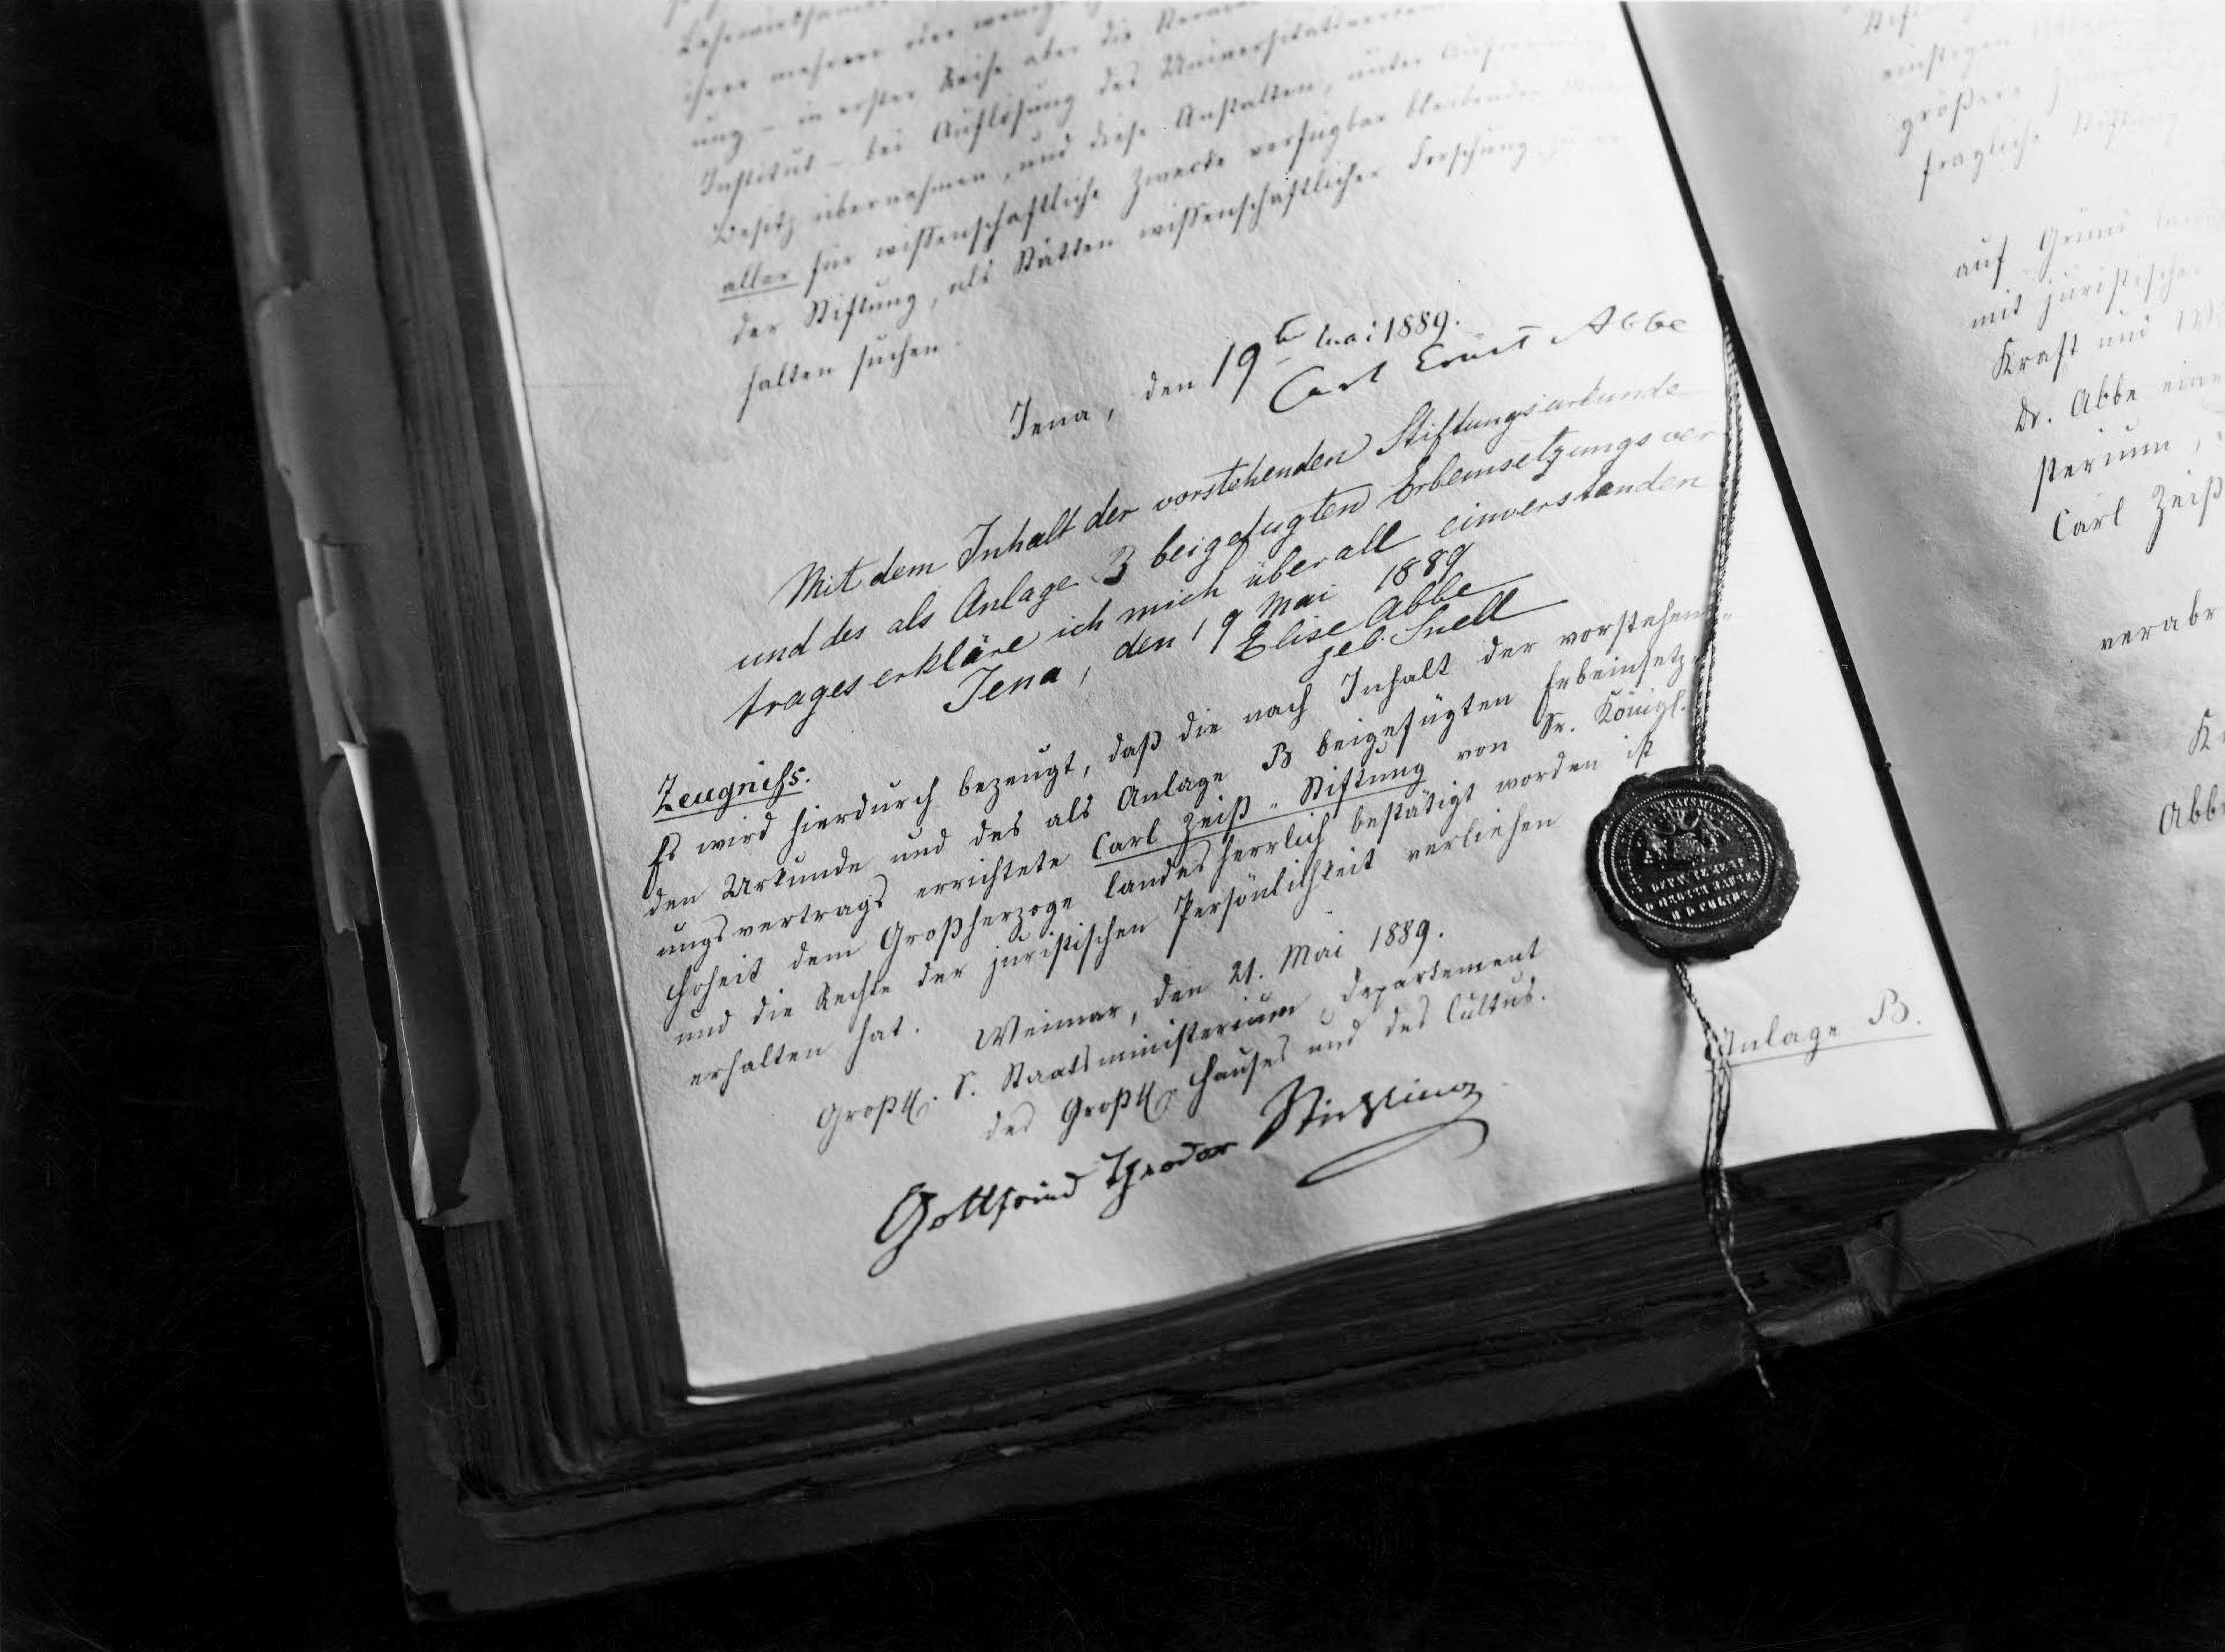 ihrer mehrere oder wenige
ung – in erster Reihe aber die
Institut – bei Auflösung des Universitätsverbandes
Besitz übernehmen, und diese Anstalten, unter Aufwendung
aller für wissenschaftliche Zwecke verfügbar bleibenden
der Stiftung, als Stätten wissenschaftlicher Forschung zu er
halten suchen.
Jena, den 19ten Mai 1889.
Carl Ernst Abbe
Mit dem Inhalt der vorstehenden Stiftungsurkunde
und des als Anlage B beigefugten Erbeinsetzungsver
trages erkläre ich mich überall einverstanden
Jena, den 19 Mai 1889
Elise Abbe
geb. Snell
Zeugniß.
Es wird hierdurch bezeugt, daß die nach Inhalt der vorstehen-
den Urkunde und des als Anlage B beigefügten Erbeinsetz-
ungsvertrags errichtete Carl Zeiß-Stiftung von Sr. Königl.
Hoheit dem Großherzoge landesherrlich bestätigt worden ist
und die Rechte der juristischen Persönlichkeit verliehen
erhalten hat.
Weimar, den 21. Mai 1889.
Großh. S. Staatsministerium, Departement
des Großh. Hauses und des Cultus.
Gottfried Theodor Stichling
STAATSMINIST
DEPARTEMENT
D GROSSH HAUSES
U D CULTUS
Anlage B.
einstigen
größere
fragliche Stiftung
auf Grund
mit juristischer
Kraft und
Dr. Abbe eine
sterium,
Carl Zeiß
verabr
K
Abbe